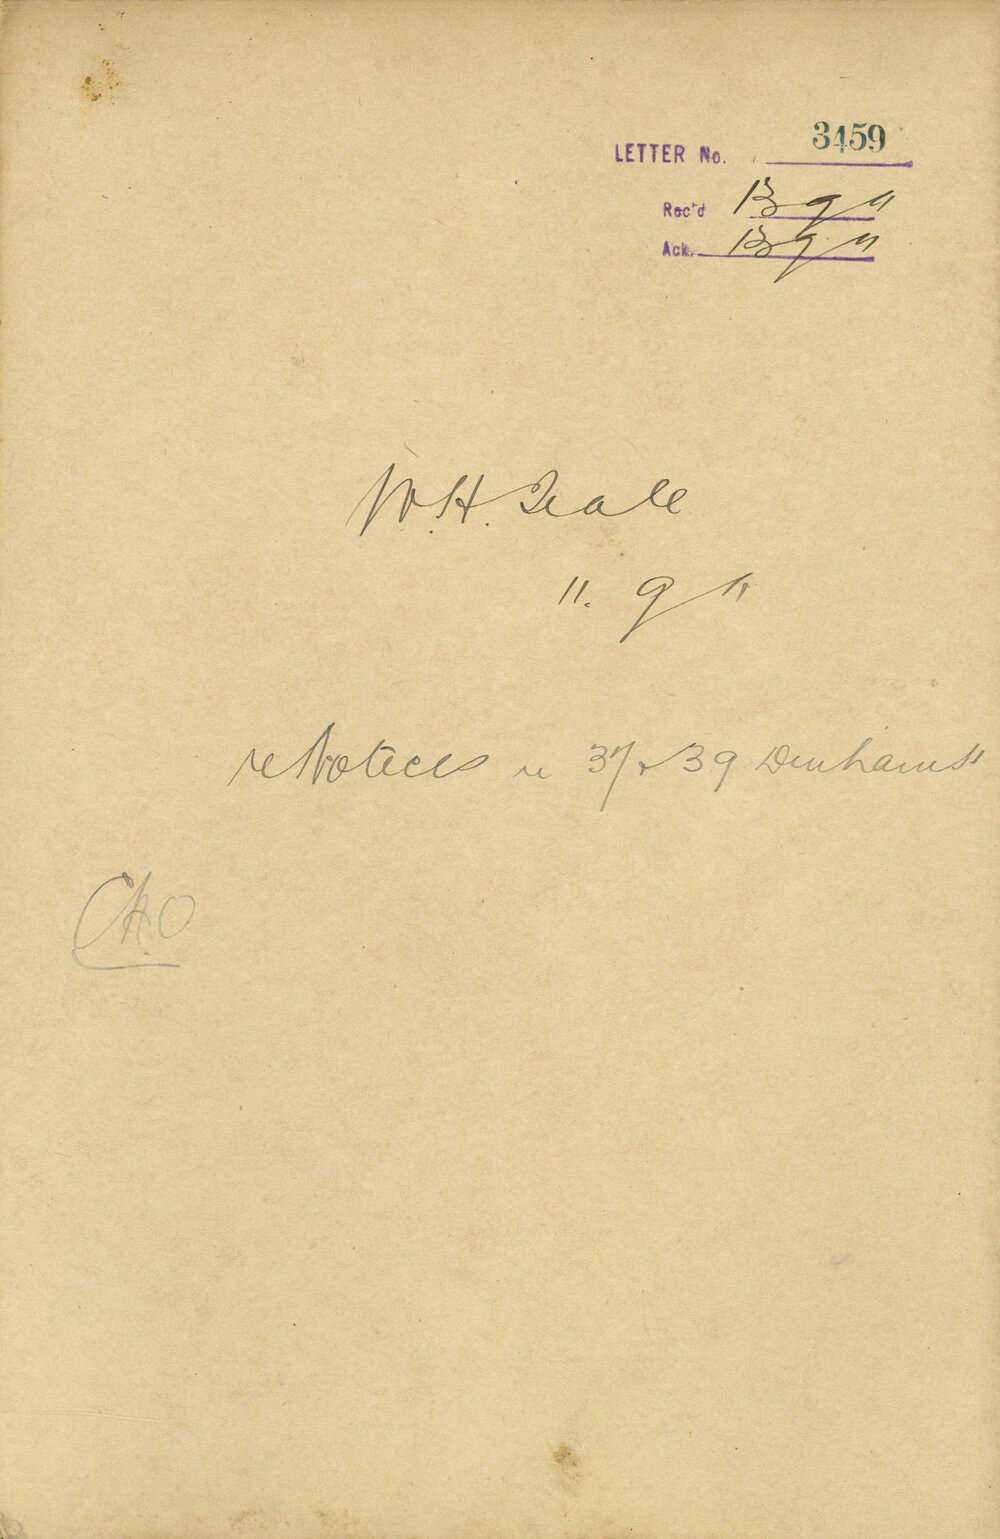 LETTER No. 3459
Rec'd 13 9 11
Ack. 13 9 11
W.H. Teale
11. 9 11
re Notices re 37 & 39 Denham St
CHO